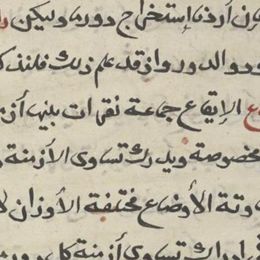 إن أردنا إستخراج دوره وليكن
والدور وإذ قد علم ذلك فلنذكر
الإيقاع جماعة نقرات بينها أز
مخصوصة ويدرك تساوى الأزمنة و
وتة الأوضاع مختلفة الأوزان لا
تساوى أزمنة كل دور